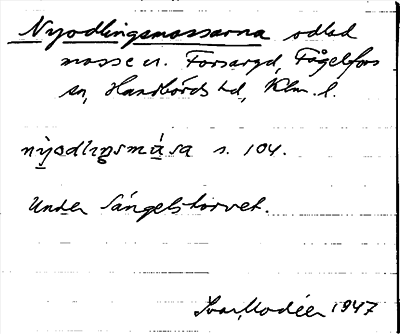 Nyodlingsmossarna odlad
mosse v. Forsaryd, Fågelfors
sn, Handbörds hd, Klm. l.
nyodlıŋsmåsa s. 104.
Under Sängelstorvet.
Ivar Modéer 1947